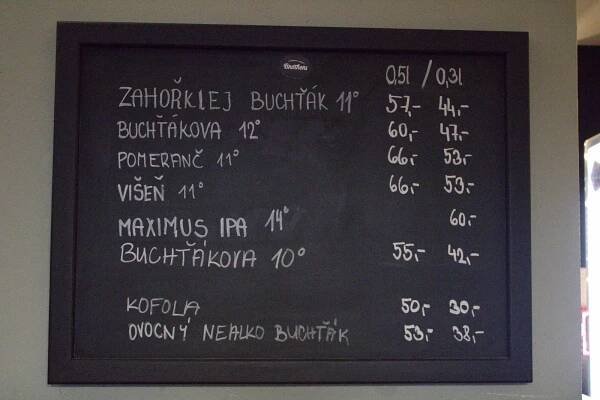 0,5l / 0,3l
ZAHOŘKLEJ BUCHŤÁK 11° 57,- 44,-
BUCHŤÁKOVA 12° 60,- 47,-
POMERANČ 11° 66,- 53,-
VIŠEŇ 11° 66,- 53,-
MAXIMUS IPA 14° 60,-
BUCHŤÁKOVA 10° 55,- 42,-
KOFOLA 50,- 30,-
OVOCNÝ NEALKO BUCHŤÁK 53,- 38,-